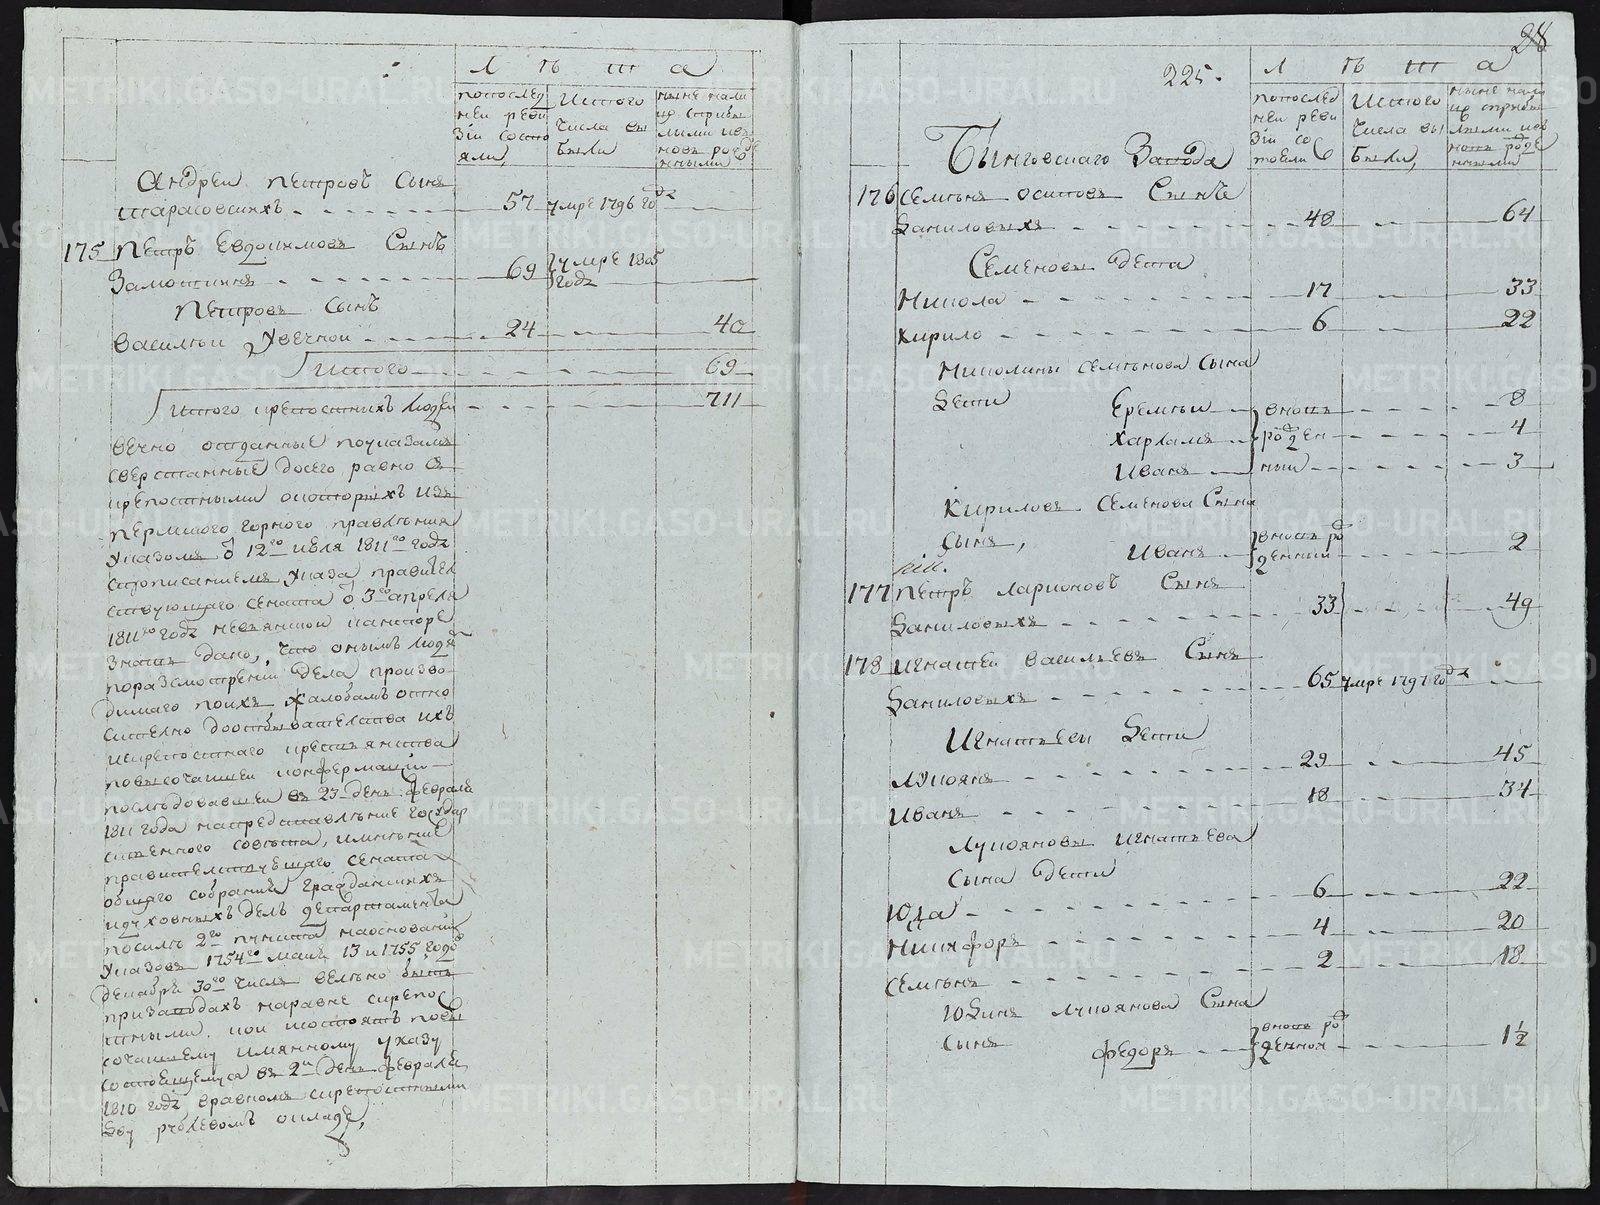 Л ѣ т а
попослед
ней реви
зіи состо
яли
Изтого
числа вы
были
ныне нали
цо сприбы
лыми ивъ
новь рожде
нными
Андреи Петровъ Сынъ
Тарасовскихъ 57 умре 1796 году
175 Петръ Евдокимовъ Сынъ
Замотинъ 69 умре 1805
годъ
Петровъ Сынъ
Василеи увечнои 24 40
Итого 69
Итого крепостнихъ людеи 711
вечно отданные поуказамъ
сверстанные досего равно съ
крепостными окоторыхъ изъ
пермскаго горного правленія
указомъ от 12го июля 1811го годъ
спрописаниемъ указа правител
ствующаго сената от 3го апреля
1811го годъ невьянскои канторе
знать дано, что онымъ людемъ
поразсмотреніи дела произво
димаго поихъ жалобамъ отно
сително доотбывателства ихъ
искрепостнаго крестьянства
повысочаишеи конфермаціи
последовавшеи въ 23 день февраля
1811 года напредставление государ
ственного совета, имнение
правителствующаго сената
общаго собрания гражданскихъ
идуховныхъ делъ департамента
посиле 2го пункта наосновании
указовъ 1754го маия 13 и 1755 годо
декабря 30го числъ велено быть
призаводахъ наравне скрепос
тными кои икостоятъ повы
сочаишему имянному указу
состоящемуся въ 2и день февраля
1810 годъ вравномъ скрепостными
дву рублевомъ окладе,
28
225.
Л ѣ т а
попослед
ней реви
зіи со
стояли
Изтого
числа вы
были,
ныне нали
цо сприбы
лыми ивъ
новь рожде
нными
Быньговскаго Завода
176 Семенъ осиповъ Сынъ
Даниловыхъ 48 64
Семеновы дети
Никола 17 33
Кирило 6 22
Николины семенова сына
Дети Еремеи вновь 8
Харламъ рожден 4
Иванъ ныи 3
Кириловъ семенова Сына
Сынъ, Иванъ вновь ро
жденныи 2
177 Петръ Ларионовъ Сынъ
Даниловыхъ 33 49
178 Игнатеи васильевъ Сынъ
Даниловыхъ 65 умре 1797 году
Игнатьеи Дети
Лукоянъ 29 45
Иванъ 18 34
Лукояновы игнатьева
Сына дети
Юда 6 22
Никифоръ 4 20
Семенъ 2 18
Юдинъ лукоянова Сына
Сынъ федоръ вновь ро
жденнои 1½
METRIKI.GASO-URAL.RU